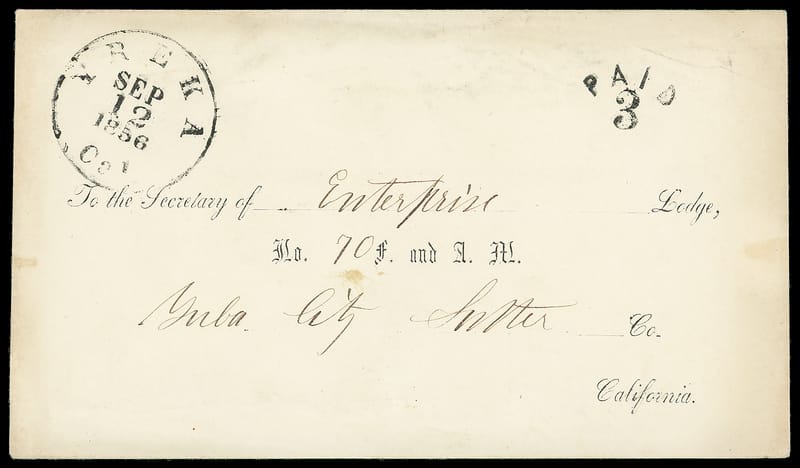 YREKA
SEP
12
1856
Cal
PAID
3
To the Secretary of Enterprise Lodge,
No. 70 F. and A. M.
Yuba City Sutter Co.
California.